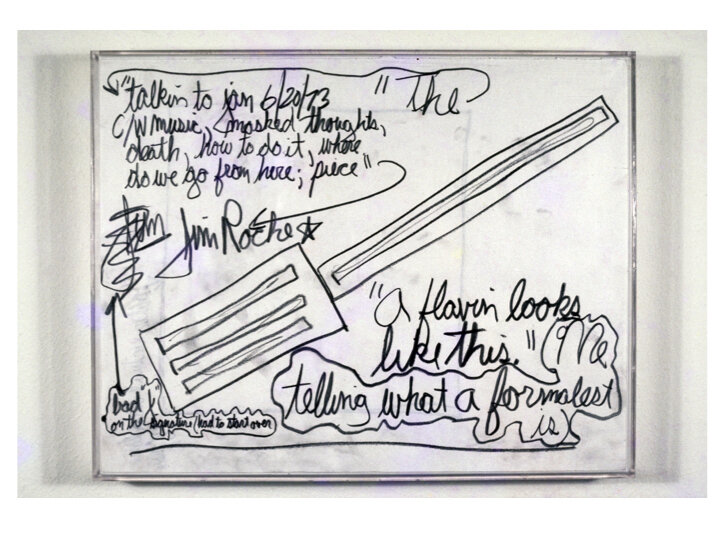 "The
"talkin to jan 6/20/73
c/w music, smoked thoughts,
death, how to do it, where
do we go from here; piece"
Jim Roche
"a flavin looks
like this." (Me
telling what a formalest
is)
bad "J"
on the signature/had to start over